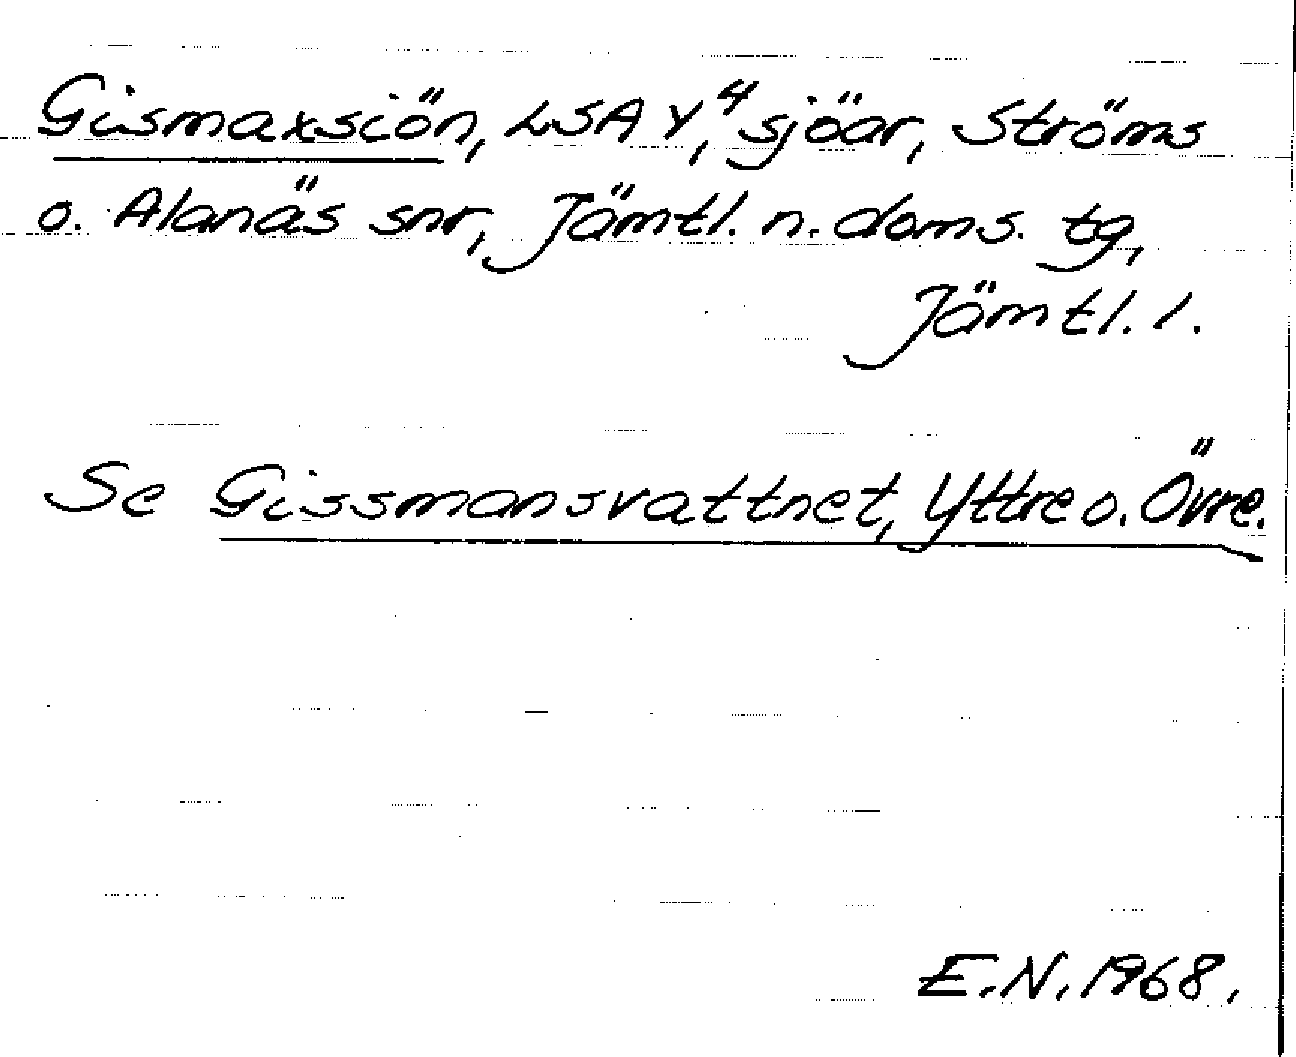 Gismaxsiön, LSA Y,⁴ sjöar, Ströms
o. Alanäs snr, Jämtl. n. doms. tg,
Jämtl. l.
Se Gissmansvattnet, Yttre o. Övre.
E.N. 1968.